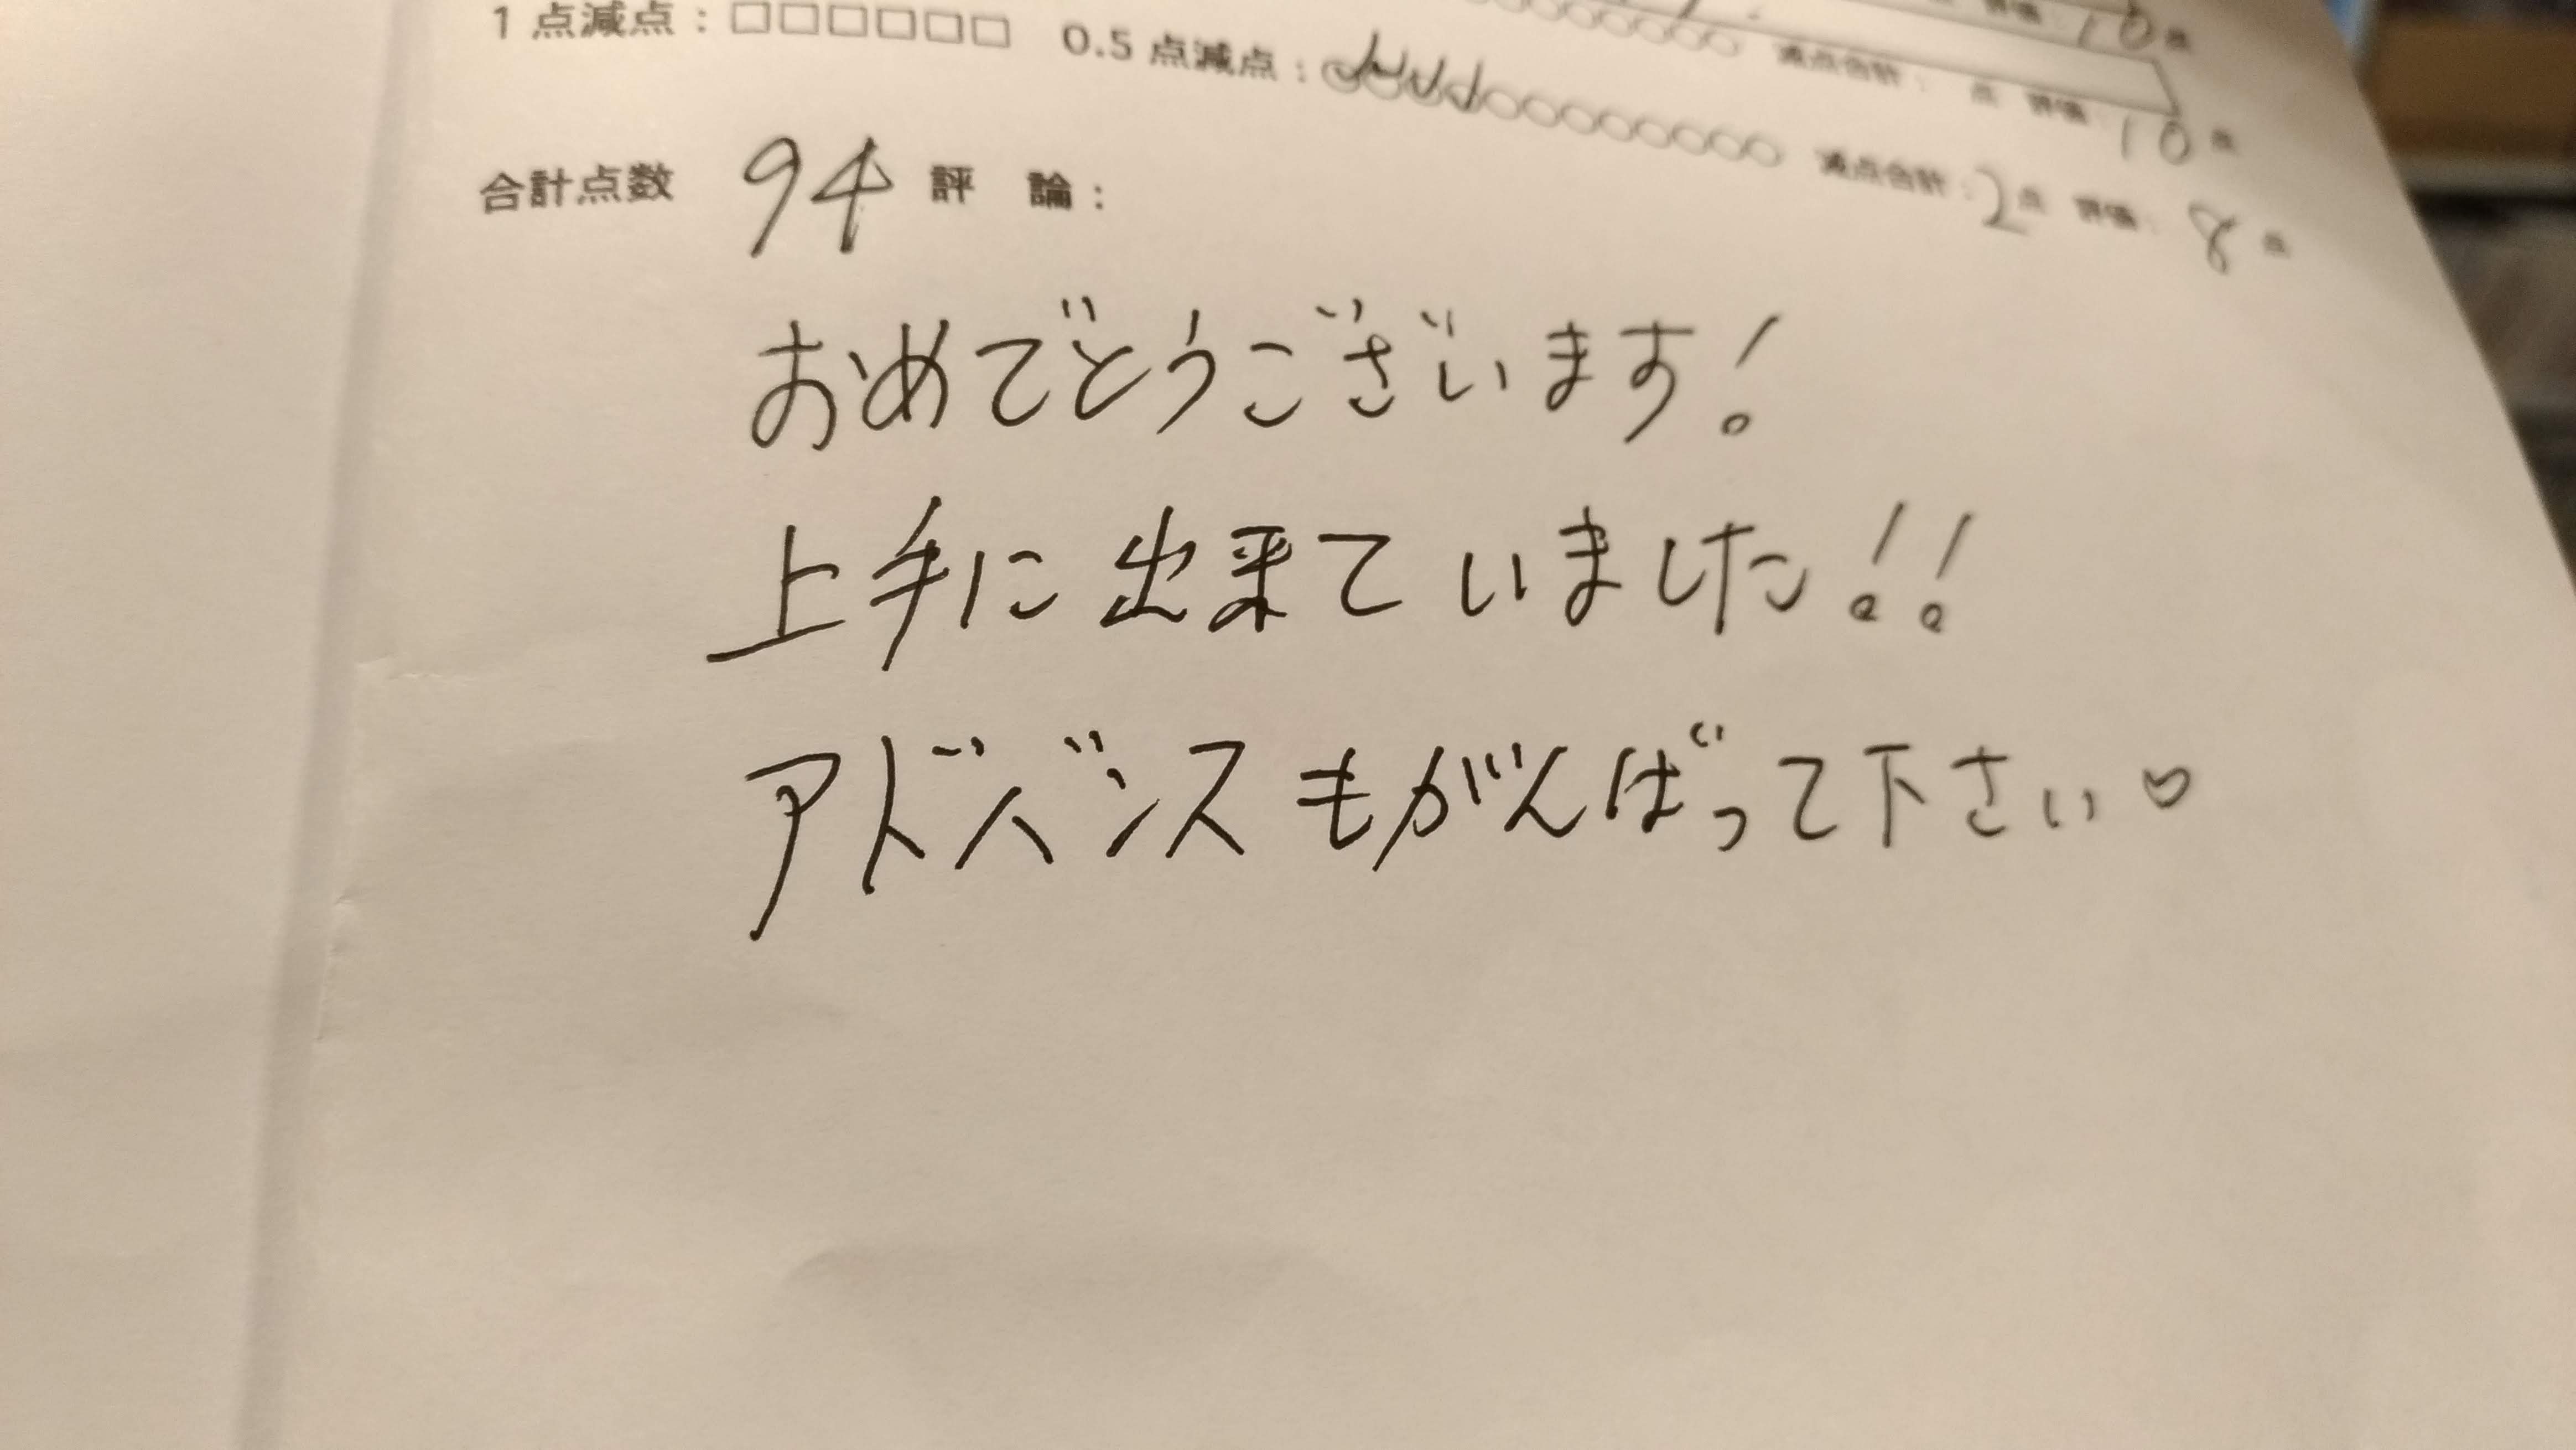 評価：10点
減点合計：　点　評価：10点
1点減点：□□□□□□　0.5点減点：○○○○○○○○○○○○○　減点合計：2点　評価：8点
合計点数　94　評　論：
おめでとうございます！
上手に出来ていました！！
アドバンスもがんばって下さい♡